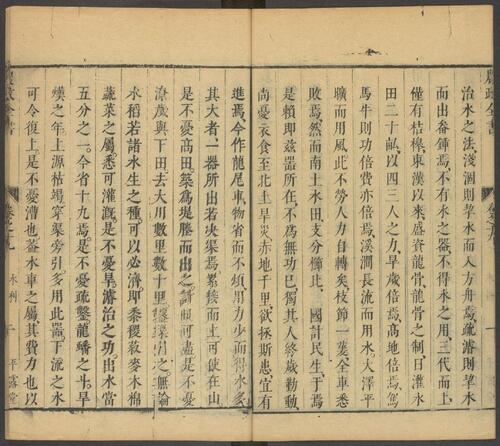 治水之法淺涸則挈水而入方舟疏濬則挈水
而出畚鍤焉不有水之器不得水之用三代而上
僅有桔橰東漢以來盛資龍骨龍骨之制日灌水
田二十畝以四三人之力旱歲倍焉高地倍焉駕
馬牛則功倍費亦倍焉溪澗長流而用水大澤平
曠而用風此不勞人力自轉矣枝節一菱全車悉
敗焉然而南土水田支分櫛比 國計民生于焉
是賴即茲器所在不為無功已獨其人終歲勤動
尚憂衣食至北土旱災赤地千里欲拯斯患宜有
進焉今作龍尾車物省而不煩用力少而得水多
其大者一器所出若决渠焉累接而上可使在山
是不憂高田築為堤塍而出之計晷可盡是不憂
潦歲與下田去大川數里數十里鑿渠引之無論
水稻若諸水生之種可以必濟即黍稷菽麥木棉
蔬菜之屬悉可灌溉是不憂旱濬治之功出水當
五分之一今省十九焉是不憂疏鑿龍蟠之斗旱
熯之年上源枯竭穿渠旁引多用此器下流之水
可令復上是不憂漕也葢水車之屬其費力也以
農政全書
卷之十九 水利 平露堂